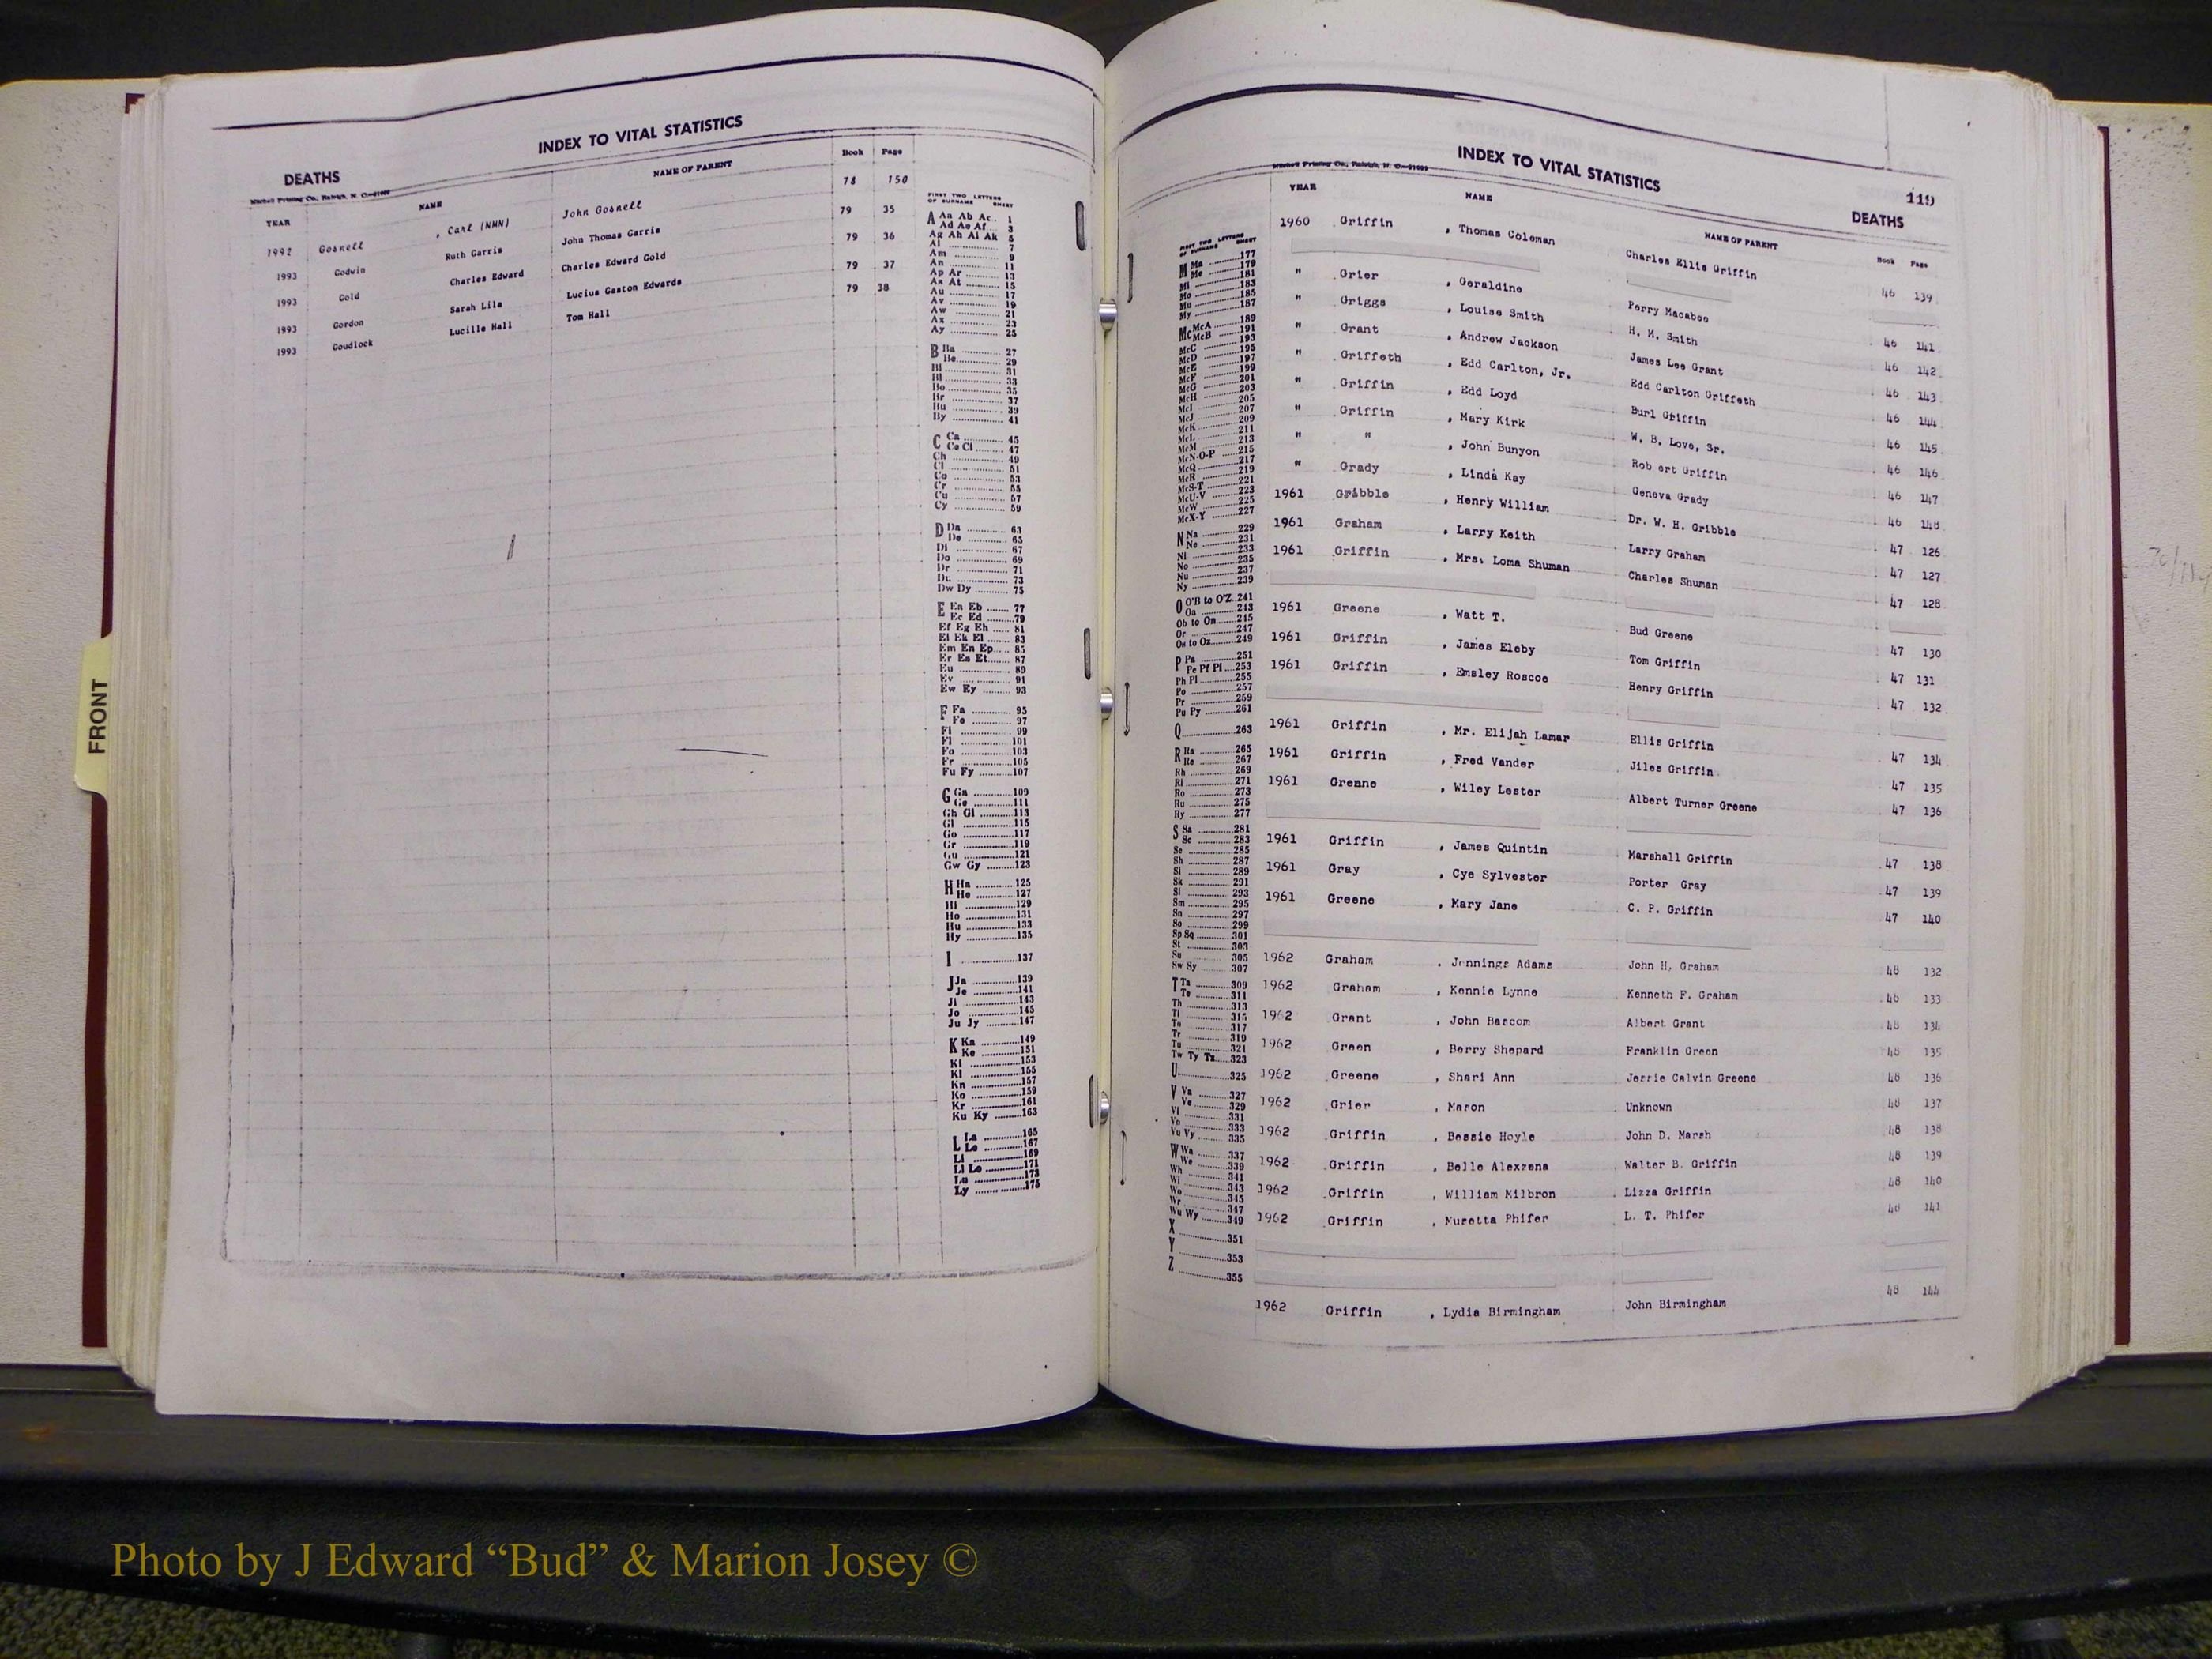 INDEX TO VITAL STATISTICS
DEATHS
Mitchell Printing Co., Raleigh, N. C.
YEAR NAME NAME OF PARENT Book Page
1992 Gosnell , Carl (NMN) John Gosnell 78 150
1993 Godwin Ruth Garris John Thomas Garris 79 35
1993 Gold Charles Edward Charles Edward Gold 79 36
1993 Gordon Sarah Lila Lucius Gaston Edwards 79 37
1993 Goudlock Lucille Hall Tom Hall 79 38
FIRST TWO LETTERS
OF SURNAME SHEET
A Aa Ab Ac 1
Ad Ae Af 3
Ag Ah Ai Ak 5
Al 7
Am 9
An 11
Ap Ar 13
As At 15
Au 17
Av 19
Aw 21
Ax 23
Ay 25
B Ba 27
Be 29
Bi 31
Bl 33
Bo 35
Br 37
Bu 39
By 41
C Ca 45
Ce Ci 47
Ch 49
Cl 51
Co 53
Cr 55
Cu 57
Cy 59
D Da 63
De 65
Di 67
Do 69
Dr 71
Du 73
Dw Dy 75
E Ea Eb 77
Ec Ed 79
Ef Eg Eh 81
Ei Ek El 83
Em En Ep 85
Er Es Et 87
Eu 89
Ev 91
Ew Ey 93
F Fa 95
Fe 97
Fi 99
Fl 101
Fo 103
Fr 105
Fu Fy 107
G Ga 109
Ge 111
Gh Gi 113
Gl 115
Go 117
Gr 119
Gu 121
Gw Gy 123
H Ha 125
He 127
Hi 129
Ho 131
Hu 133
Hy 135
I 137
J Ja 139
Je 141
Ji 143
Jo 145
Ju Jy 147
K Ka 149
Ke 151
Ki 153
Kl 155
Kn 157
Ko 159
Kr 161
Ku Ky 163
L La 165
Le 167
Li 169
Ll Lo 171
Lu 173
Ly 175
FRONT
INDEX TO VITAL STATISTICS
119
DEATHS
Mitchell Printing Co., Raleigh, N. C.
YEAR NAME NAME OF PARENT Book Page
1960 Griffin , Thomas Coleman Charles Ellis Griffin 46 139
" Grier , Geraldine Perry Macabee 46 141
" Griggs , Louise Smith H. M. Smith 46 142
" Grant , Andrew Jackson James Lee Grant 46 143
" Griffeth , Edd Carlton, Jr. Edd Carlton Griffeth 46 144
" Griffin , Edd Loyd Burl Griffin 46 145
" Griffin , Mary Kirk W. B. Love, Sr. 46 146
" " , John Bunyon Rob ert Griffin 46 147
" Grady , Linda Kay Geneva Grady 46 148
1961 Gribble , Henry William Dr. W. H. Gribble 47 126
1961 Graham , Larry Keith Larry Graham 47 127
1961 Griffin , Mrs. Loma Shuman Charles Shuman 47 128
1961 Greene , Watt T. Bud Greene 47 130
1961 Griffin , James Eleby Tom Griffin 47 131
1961 Griffin , Emsley Roscoe Henry Griffin 47 132
1961 Griffin , Mr. Elijah Lamar Ellis Griffin 47 134
1961 Griffin , Fred Vander Jiles Griffin 47 135
1961 Greane , Wiley Lester Albert Turner Greene 47 136
1961 Griffin , James Quintin Marshall Griffin 47 138
1961 Gray , Cye Sylvester Porter Gray 47 139
1961 Greene , Mary Jane C. P. Griffin 47 140
1962 Graham , Jennings Adams John H. Graham 48 132
1962 Graham , Kennie Lynne Kenneth F. Graham 48 133
1962 Grant , John Bascom Albert Grant 48 134
1962 Green , Berry Shepard Franklin Green 48 135
1962 Greene , Shari Ann Jerrie Calvin Greene 48 136
1962 Grier , Mason Unknown 48 137
1962 Griffin , Bessie Hoyle John D. Marsh 48 138
1962 Griffin , Belle Alexzena Walter B. Griffin 48 139
1962 Griffin , William Milbron Lizza Griffin 48 140
1962 Griffin , Nuretta Phifer L. T. Phifer 48 141
1962 Griffin , Lydia Birmingham John Birmingham 48 144
FIRST TWO LETTERS
OF SURNAME SHEET
M Ma 177
Me 179
Mi 181
Mo 185
Mu 187
Mc McA 189
McB 191
McC 193
McD 195
McE 197
McF 199
McG 201
McH 203
McI 205
McJ 207
McK 209
McL 211
McM 213
McN-O-P 215
McQ 217
McR 219
McS-T 221
McU-V 223
McW 225
McX-Y 227
N Na 229
Ne 231
Ni 233
No 235
Nu 237
Ny 239
O O'B to O'Z 241
Oa 243
Ob to On 245
Or 247
Os to Oz 249
P Pa 251
Pe Pf Pi 253
Ph Pl 255
Po 257
Pr 259
Pu Py 261
Q 263
R Ra 265
Re 267
Rh 269
Ri 271
Ro 273
Ru 275
Ry 277
S Sa 281
Sc 283
Se 285
Sh 287
Si 289
Sk 291
Sl 293
Sm 295
Sn 297
So 299
Sp Sq 301
St 303
Su 305
Sw Sy 307
T Ta 309
Te 311
Th 313
Ti 315
To 317
Tr 319
Tu 321
Tw Ty Tz 323
U 325
V Va 327
Ve 329
Vi 331
Vo 333
Vu Vy 335
W Wa 337
We 339
Wh 341
Wi 343
Wo 345
Wr 347
Wu Wy 349
X 351
Y 353
Z 355
Photo by J Edward “Bud” & Marion Josey ©